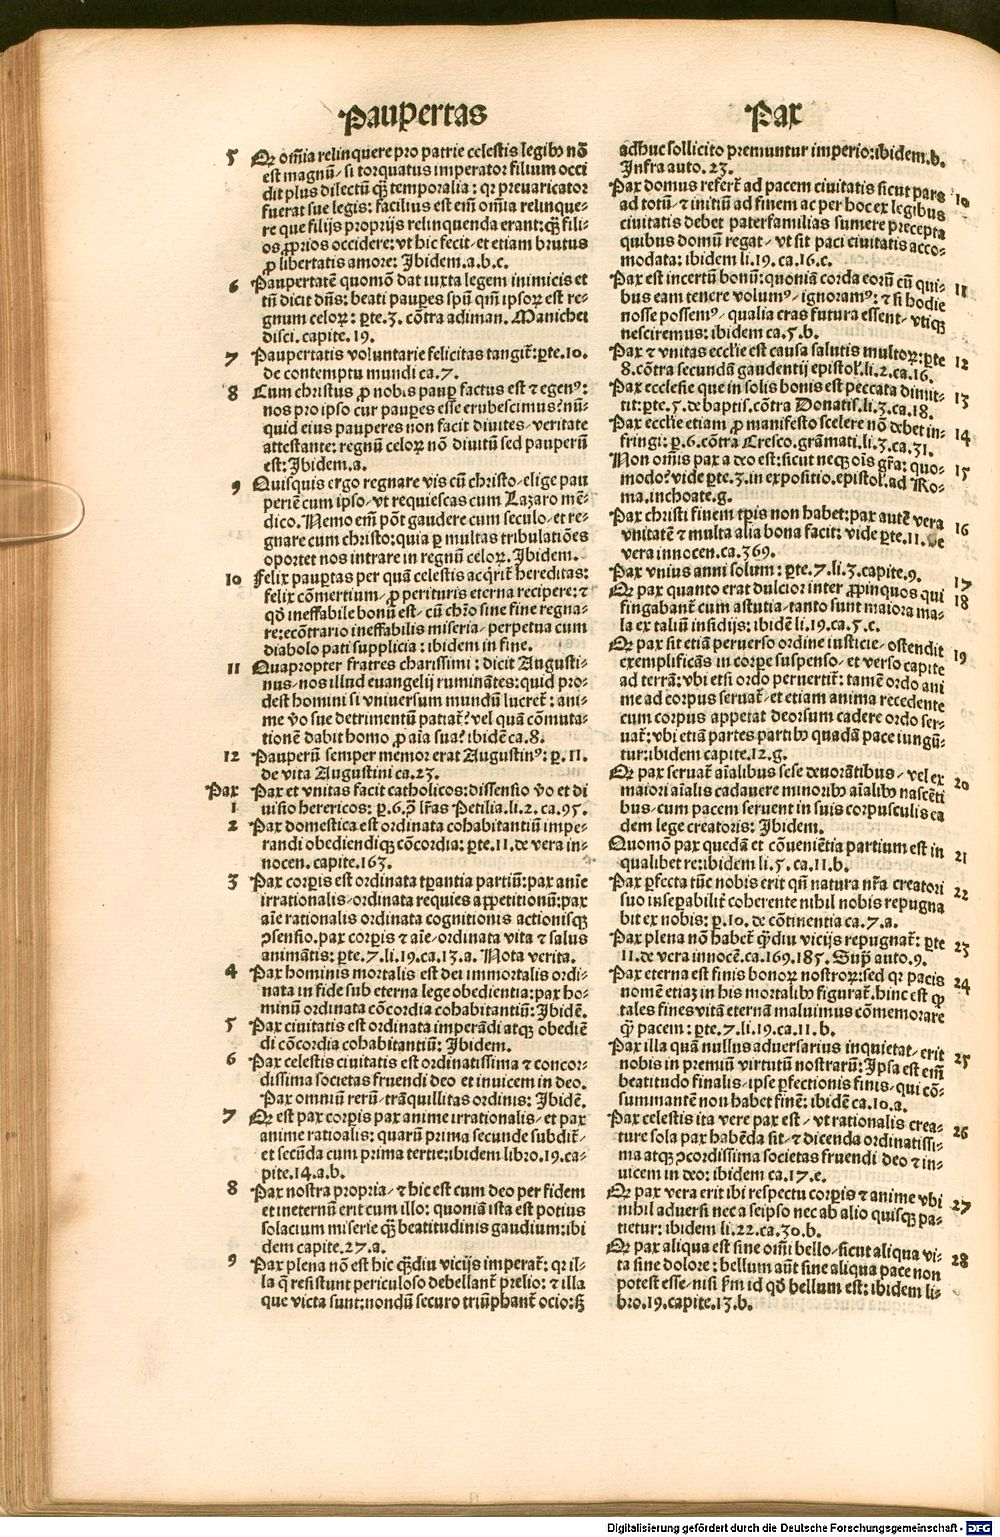 Paupertas
5 Qꝛ om̃ia relinquere pro patrie celestis legibꝰ nõ
est magnũ/ si torquatus imperator filium occi
dit plus dilectũ q̃ꝫ temporalia: qꝛ preuaricator
fuerat sue legis: facilius est em̃ om̃ia relinque⸗
re que filijs proprijs relinquenda erant: q̃ꝫ fili⸗
os ꝓprios occidere: vt hic fecit/ et etiam brutus
ꝓ libertatis amore: Ibidem.a.b.c.
6 Paupertatẽ quomõ dat iuxta legem inimicis et
tñ dicit dñs: beati pauꝑes spũ qm̃ ipsoꝝ est re⸗
gnum celoꝝ: ꝑte.3. cõtra adiman. Manichei
disci. capite. 19.
7 Paupertatis voluntarie felicitas tangit̃: ꝑte.10.
de contemptu mundi ca.7.
8 Cum christus ꝓ nobis pauꝑ factus est ⁊ egenꝰ:
nos pro ipso cur pauꝑes esse erubescimus? nũ⸗
quid eius pauperes non facit diuites/ veritate
attestante: regnũ celoꝝ nõ diuitũ sed pauperũ
est: Ibidem.a.
9 Quisquis ergo regnare vis cũ christo/ elige pau
periẽ cum ipso/ vt requiescas cum Lazaro mẽ⸗
dico. Nemo em̃ põt gaudere cum seculo/ et re⸗
gnare cum christo: quia ꝑ multas tribulatiões
oportet nos intrare in regnũ celoꝝ. Ibidem.
10 Felix pauꝑtas per quã celestis acq̃rit̃ hereditas:
felix cõmertium/ ꝓ perituris eterna recipere: ⁊
qõ ineffabile bonũ est/ cũ chr̃o sine fine regna⸗
re: ecõtrario ineffabilis miseria/ perpetua cum
diabolo pati supplicia: ibidem in fine.
11 Quapropter fratres charissimi: dicit Augusti⸗
nus/ nos illud euangelij ruminãtes: quid pro⸗
dest homini si vniuersum mundũ lucret̃: ani⸗
me v̓o sue detrimentũ patiat̃? vel quã cõmuta⸗
tionẽ dabit homo ꝓ aĩa sua? ibidẽ ca.8.
12 Pauperũ semper memor erat Augustinꝰ: ꝑ.11.
de vita Augustini ca.23.
Pax Pax et vnitas facit catholicos: dissensio v̓o et di
1 uisio herericos: ꝑ.6.ꝯ̃ lr̃as Petilia.li.2. ca.95.
2 Pax domestica est ordinata cohabitantiũ impe⸗
randi obediendiqꝫ cõcordia: ꝑte.11. de vera in⸗
nocen. capite.163.
3 Pax corꝑis est ordinata tꝑantia partiũ: pax anĩe
irrationalis/ ordinata requies aꝑpetitionũ: pax
aĩe rationalis ordinata cognitionis actionisqꝫ
ꝯsensio. pax corꝑis ⁊ aĩe/ ordinata vita ⁊ salus
animãtis: ꝑte.7.li.19.ca.13.a. Nota verita.
4 Pax hominis mortalis est dei immortalis ordi⸗
nata in fide sub eterna lege obedientia: pax ho⸗
minũ ordinata cõcordia cohabitantiũ: Ibidẽ.
5 Pax ciuitatis est ordinata imperãdi atqꝫ obediẽ
di cõcordia cohabitantiũ: Ibidem.
6 Pax celestis ciuitatis est ordinatissima ⁊ concor⸗
dissima societas fruendi deo et inuicem in deo.
Pax omniũ rerũ/ trãquillitas ordinis: Ibidẽ.
7 Qꝛ est pax corꝑis pax anime irrationalis/ et pax
anime ratioalis: quarũ prima secunde subdit̃/
et secũda cum prima tertie: ibidem libro.19.ca⸗
pite.14.a.b.
8 Pax nostra propria/ ⁊ hic est cum deo per fidem
et ineternũ erit cum illo: quoniã ista est potius
solacium miserie q̃ꝫ beatitudinis gaudium: ibi
dem capite.27.a.
9 Pax plena nõ est hic q̃ꝫdiu vicijs imperat̃: qꝛ il⸗
la q̃ resistunt periculoso debellant̃ prelio: ⁊ illa
que victa sunt: nondũ securo triũphant̃ ocio: sꝫ
Pax
adhuc sollicito premuntur imperio: ibidem.b.
Infra auto. 23.
Pax domus refert̃ ad pacem ciuitatis sicut pars 10
ad totũ/ ⁊ initiũ ad finem ac per hoc ex legibus
ciuitatis debet paterfamilias sumere precepta
quibus domũ regat/ vt sit paci ciuitatis acco⸗
modata: ibidem li.19. ca.16.c.
Pax est incertũ bonũ: quoniã corda eorũ cũ qui⸗ 11
bus eam tenere volumꝰ/ ignoramꝰ: ⁊ si hodie
nosse possemꝰ/ qualia cras futura essent/ vtiqꝫ
nesciremus: ibidem ca.5.b.
Pax ⁊ vnitas eccl̃ie est causa salutis multoꝝ: ꝑte 12
8.cõtra secundã gaudentij epistol̃.li.2.ca.16.
Pax ecclesie que in solis bonis est peccata dimit⸗ 13
tit: ꝑte.5.de baptis.cõtra Donatis.li.3.ca.18.
Pax eccl̃ie etiam ꝓ manifesto scelere nõ debet in⸗ 14
fringi: ꝑ.6.cõtra Cresco.grãmati.li.3.ca.31.
Non om̃is pax a deo est: sicut neqꝫ oĩs gr̃a: quo⸗ 15
modo? vide ꝑte.3.in expositio.epistol̃.ad Ro⸗
ma.inchoate.g.
Pax christi finem tꝑis non habet: pax autẽ vera 16
vnitatẽ ⁊ multa alia bona facit: vide ꝑte.11. de
vera innocen.ca.369.
Pax vnius anni solum: ꝑte.7.li.3.capite.9. 17
Qꝛ pax quanto erat dulcior inter ꝓpinquos qui 18
fingabant̃ cum astutia/ tanto sunt maiora ma⸗
la ex taliũ insidijs: ibidẽ li.19.ca.5.c.
Qꝛ pax sit etiã peruerso ordine iusticie/ ostendit 19
exemplificãs in corꝑe suspenso/ et verso capite
ad terrã: vbi etsi ordo peruertit̃: tamẽ ordo ani
me ad corpus seruat̃/ et etiam anima recedente
cum corpus appetat deorsum cadere ordo ser⸗
uat̃: vbi etiã partes partibꝰ quadã pace iungũ⸗
tur: ibidem capite.12.g.
Qꝛ pax seruat̃ aĩalibus sese deuorãtibus/ vel ex 20
maiori aĩalis cadauere minoribꝰ aĩalibꝰ nascẽti
bus/ cum pacem seruent in suis corpusculis ea
dem lege creatoris: Ibidem.
Quomõ pax quedã et cõueniẽtia partium est in 21
qualibet re: ibidem li.5. ca.11.b.
Pax ꝑfecta tũc nobis erit qñ natura nr̃a creatori 22
suo inseꝑabilit̃ coherente nihil nobis repugna
bit ex nobis: ꝑ.10. de cõtinentia ca.7.a.
Pax plena nõ habet̃ q̃ꝫdiu vicijs repugnat̃: ꝑte 23
11.de vera innocẽ.ca.169.185. Supꝰ auto.9.
Pax eterna est finis bonoꝝ nostroꝝ: sed qꝛ pacis 24
nomẽ etiaꝫ in his mortalibꝰ figurat̃. hinc est ꝙ
tales fines vitã eternã maluimus cõmemorare
q̃ꝫ pacem: ꝑte.7.li.19.ca.11.b.
Pax illa quã nullus aduersarius inquietat/ erit 25
nobis in premiũ virtutũ nostrarũ: Ipsa est em̃
beatitudo finalis/ ipse ꝑfectionis finis/ qui cõ⸗
summantẽ non habet finẽ: ibidẽ ca.10.a.
Pax celestis ita vere pax est/ vt rationalis crea⸗ 26
ture sola pax habẽda sit/ ⁊ dicenda ordinatissi⸗
ma atqꝫ ꝯcordissima societas fruendi deo ⁊ in⸗
uicem in deo: ibidem ca.17.e.
Qꝛ pax vera erit ibi respectu corꝑis ⁊ anime vbi 27
nihil aduersi nec a seipso nec ab alio quisqꝫ pa⸗
tietur: ibidem li.22.ca.30.b.
Qꝛ pax aliqua est sine om̃i bello/ sicut aliqua vi⸗ 28
ta sine dolore: bellum aũt sine aliqua pace non
potest esse/ nisi s̃m id qõ bellum est: ibidem li⸗
bro.19.capite.13.b.
Digitalisierung gefördert durch die Deutsche Forschungsgemeinschaft - DFG